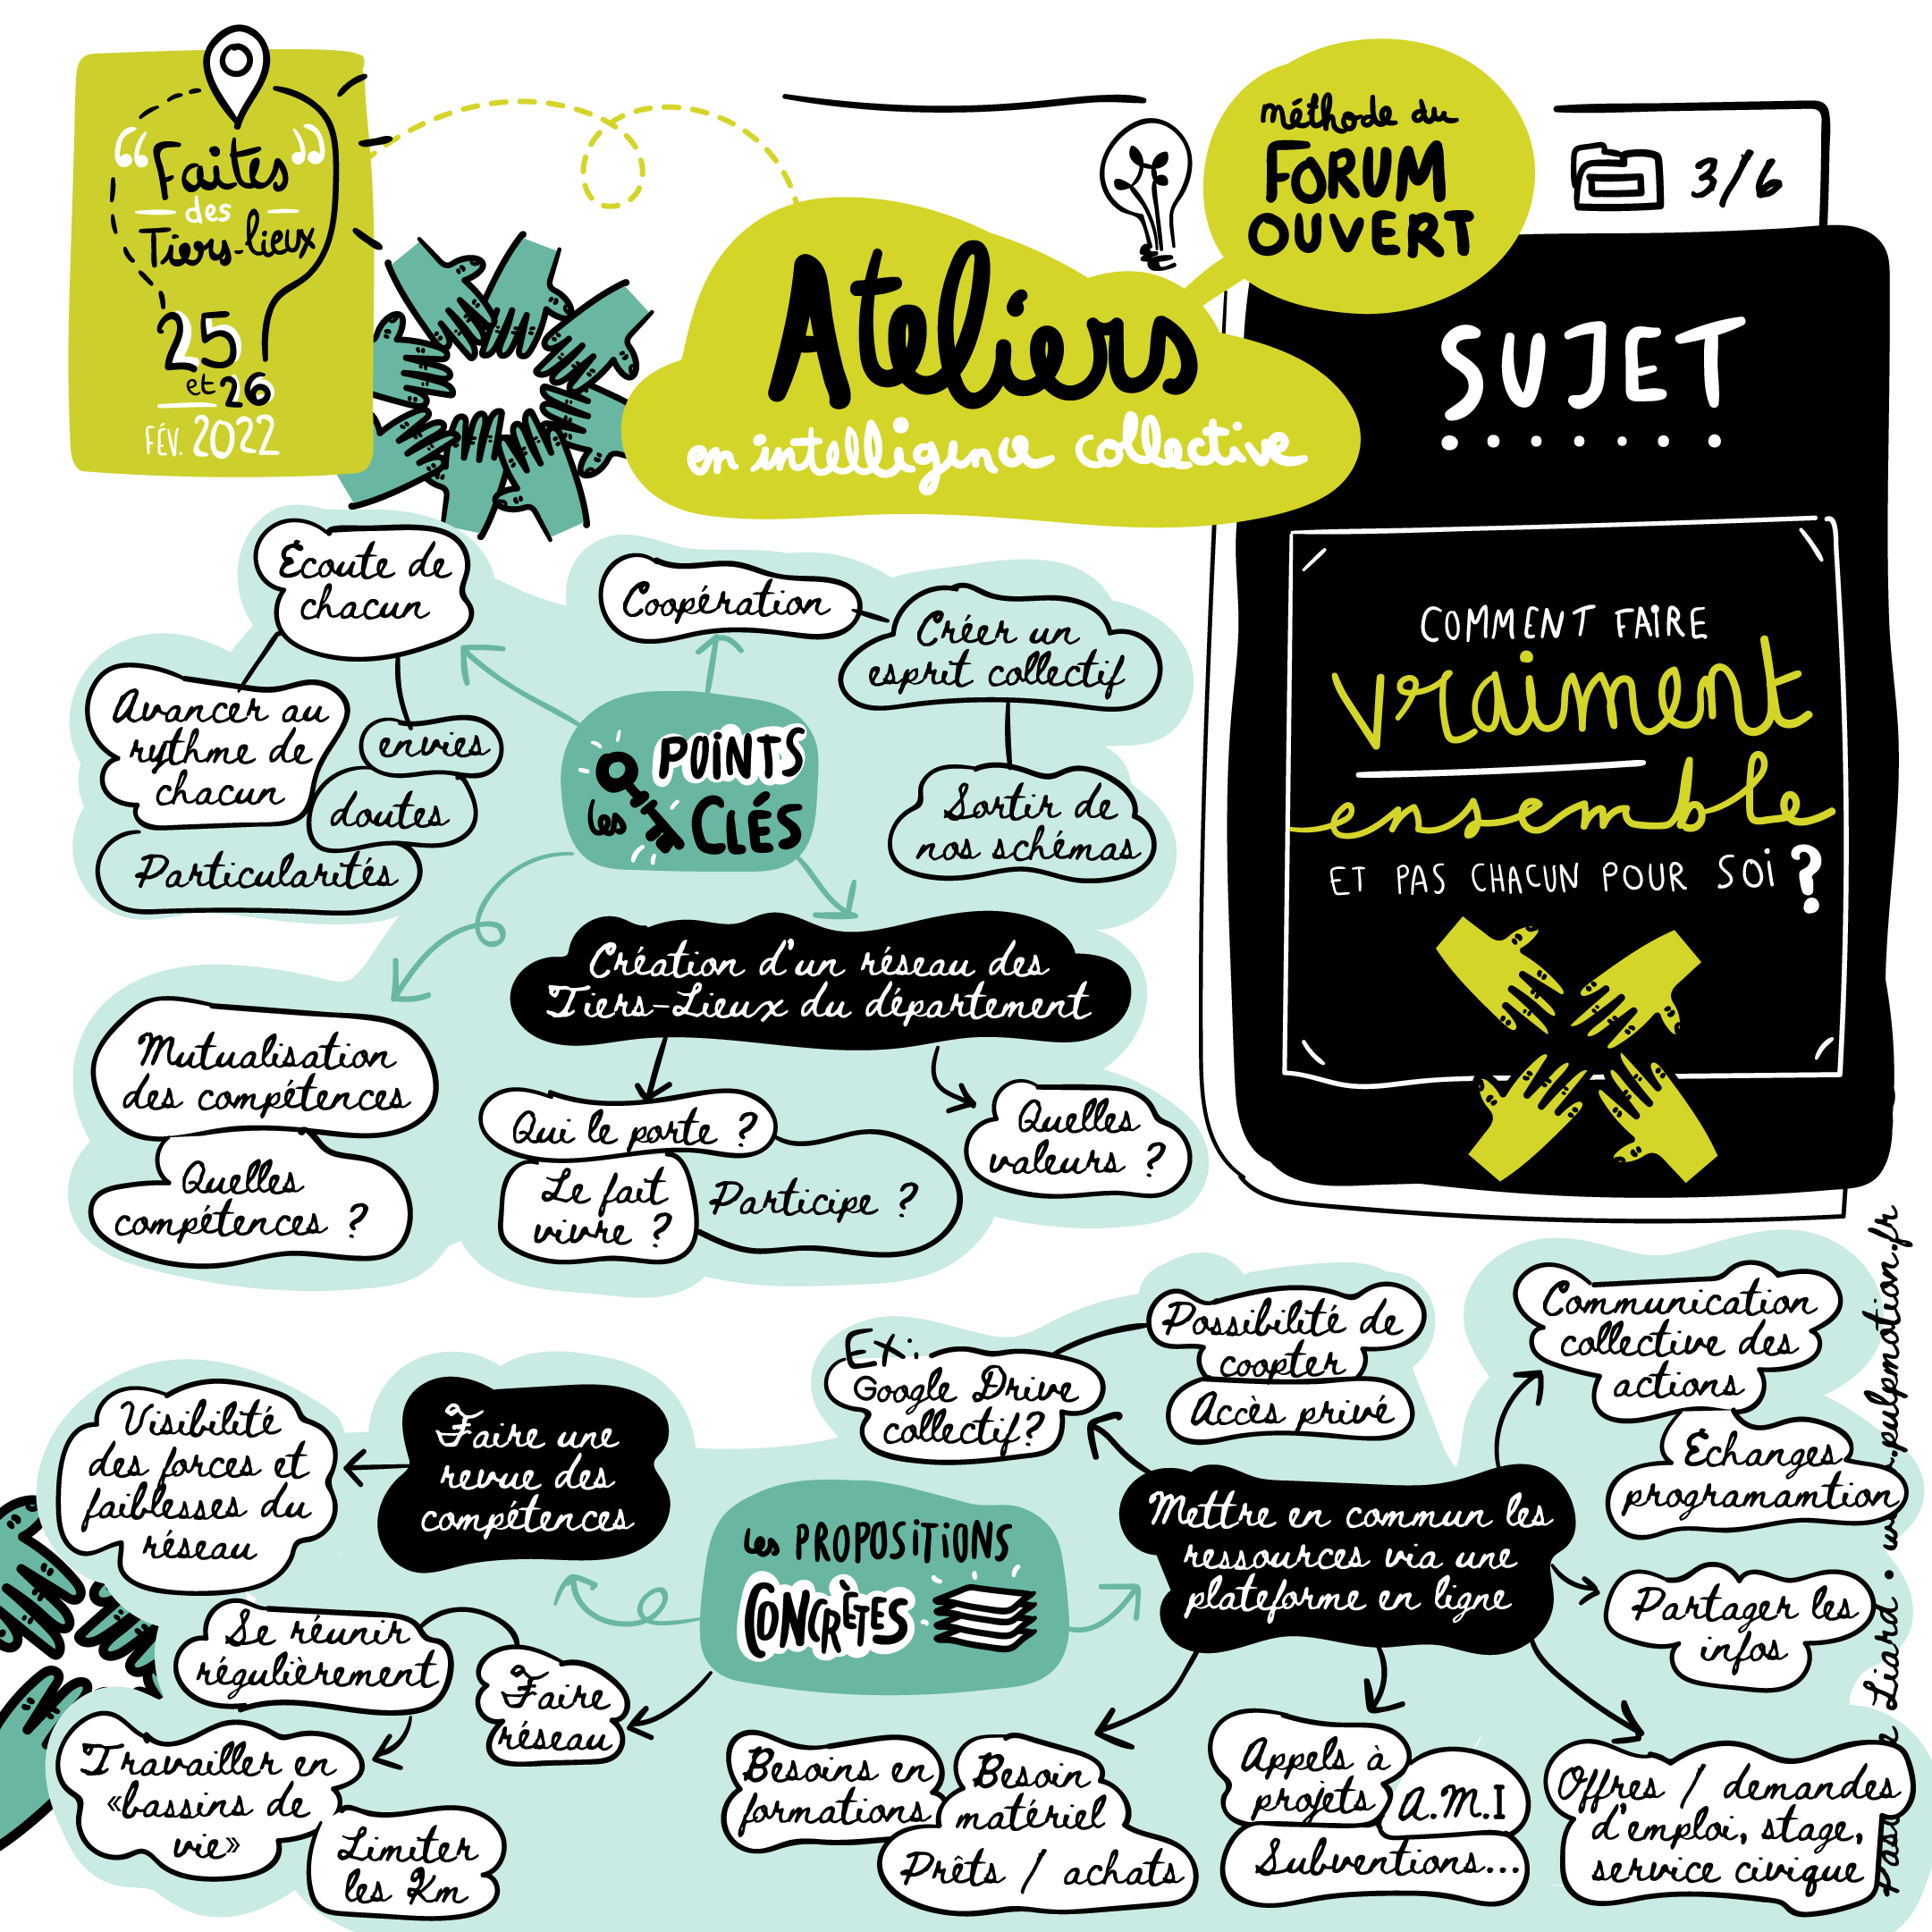 “Faites”
des
Tiers-lieux
25
et 26
FÉV. 2022
Ateliers
en intelligence collective
méthode du
FORUM
OUVERT
3/6
SUJET
COMMENT FAIRE
vraiment
ensemble
ET PAS CHACUN POUR SOI ?
les POINTS
CLÉS
Écoute de
chacun
Avancer au
rythme de
chacun
envies
doutes
Particularités
Coopération
Créer un
esprit collectif
Sortir de
nos schémas
Mutualisation
des compétences
Quelles
compétences ?
Création d'un réseau des
Tiers-Lieux du département
Qui le porte ?
Le fait
vivre ?
Participe ?
Quelles
valeurs ?
Les PROPOSITIONS
CONCRÈTES
Faire une
revue des
compétences
Visibilité
des forces et
faiblesses du
réseau
Faire
réseau
Se réunir
régulièrement
Travailler en
«bassins de
vie»
Limiter
les Km
Mettre en commun les
ressources via une
plateforme en ligne
EX:
Google Drive
collectif?
Possibilité de
coopter
Accès privé
Communication
collective des
actions
Échanges
programamtion
Partager les
infos
Besoins en
formations
Besoin
matériel
Prêts / achats
Appels à
projets
A.M.I
Subventions...
Offres / demandes
d'emploi, stage,
service civique
Liard • .pulpmotion.fr